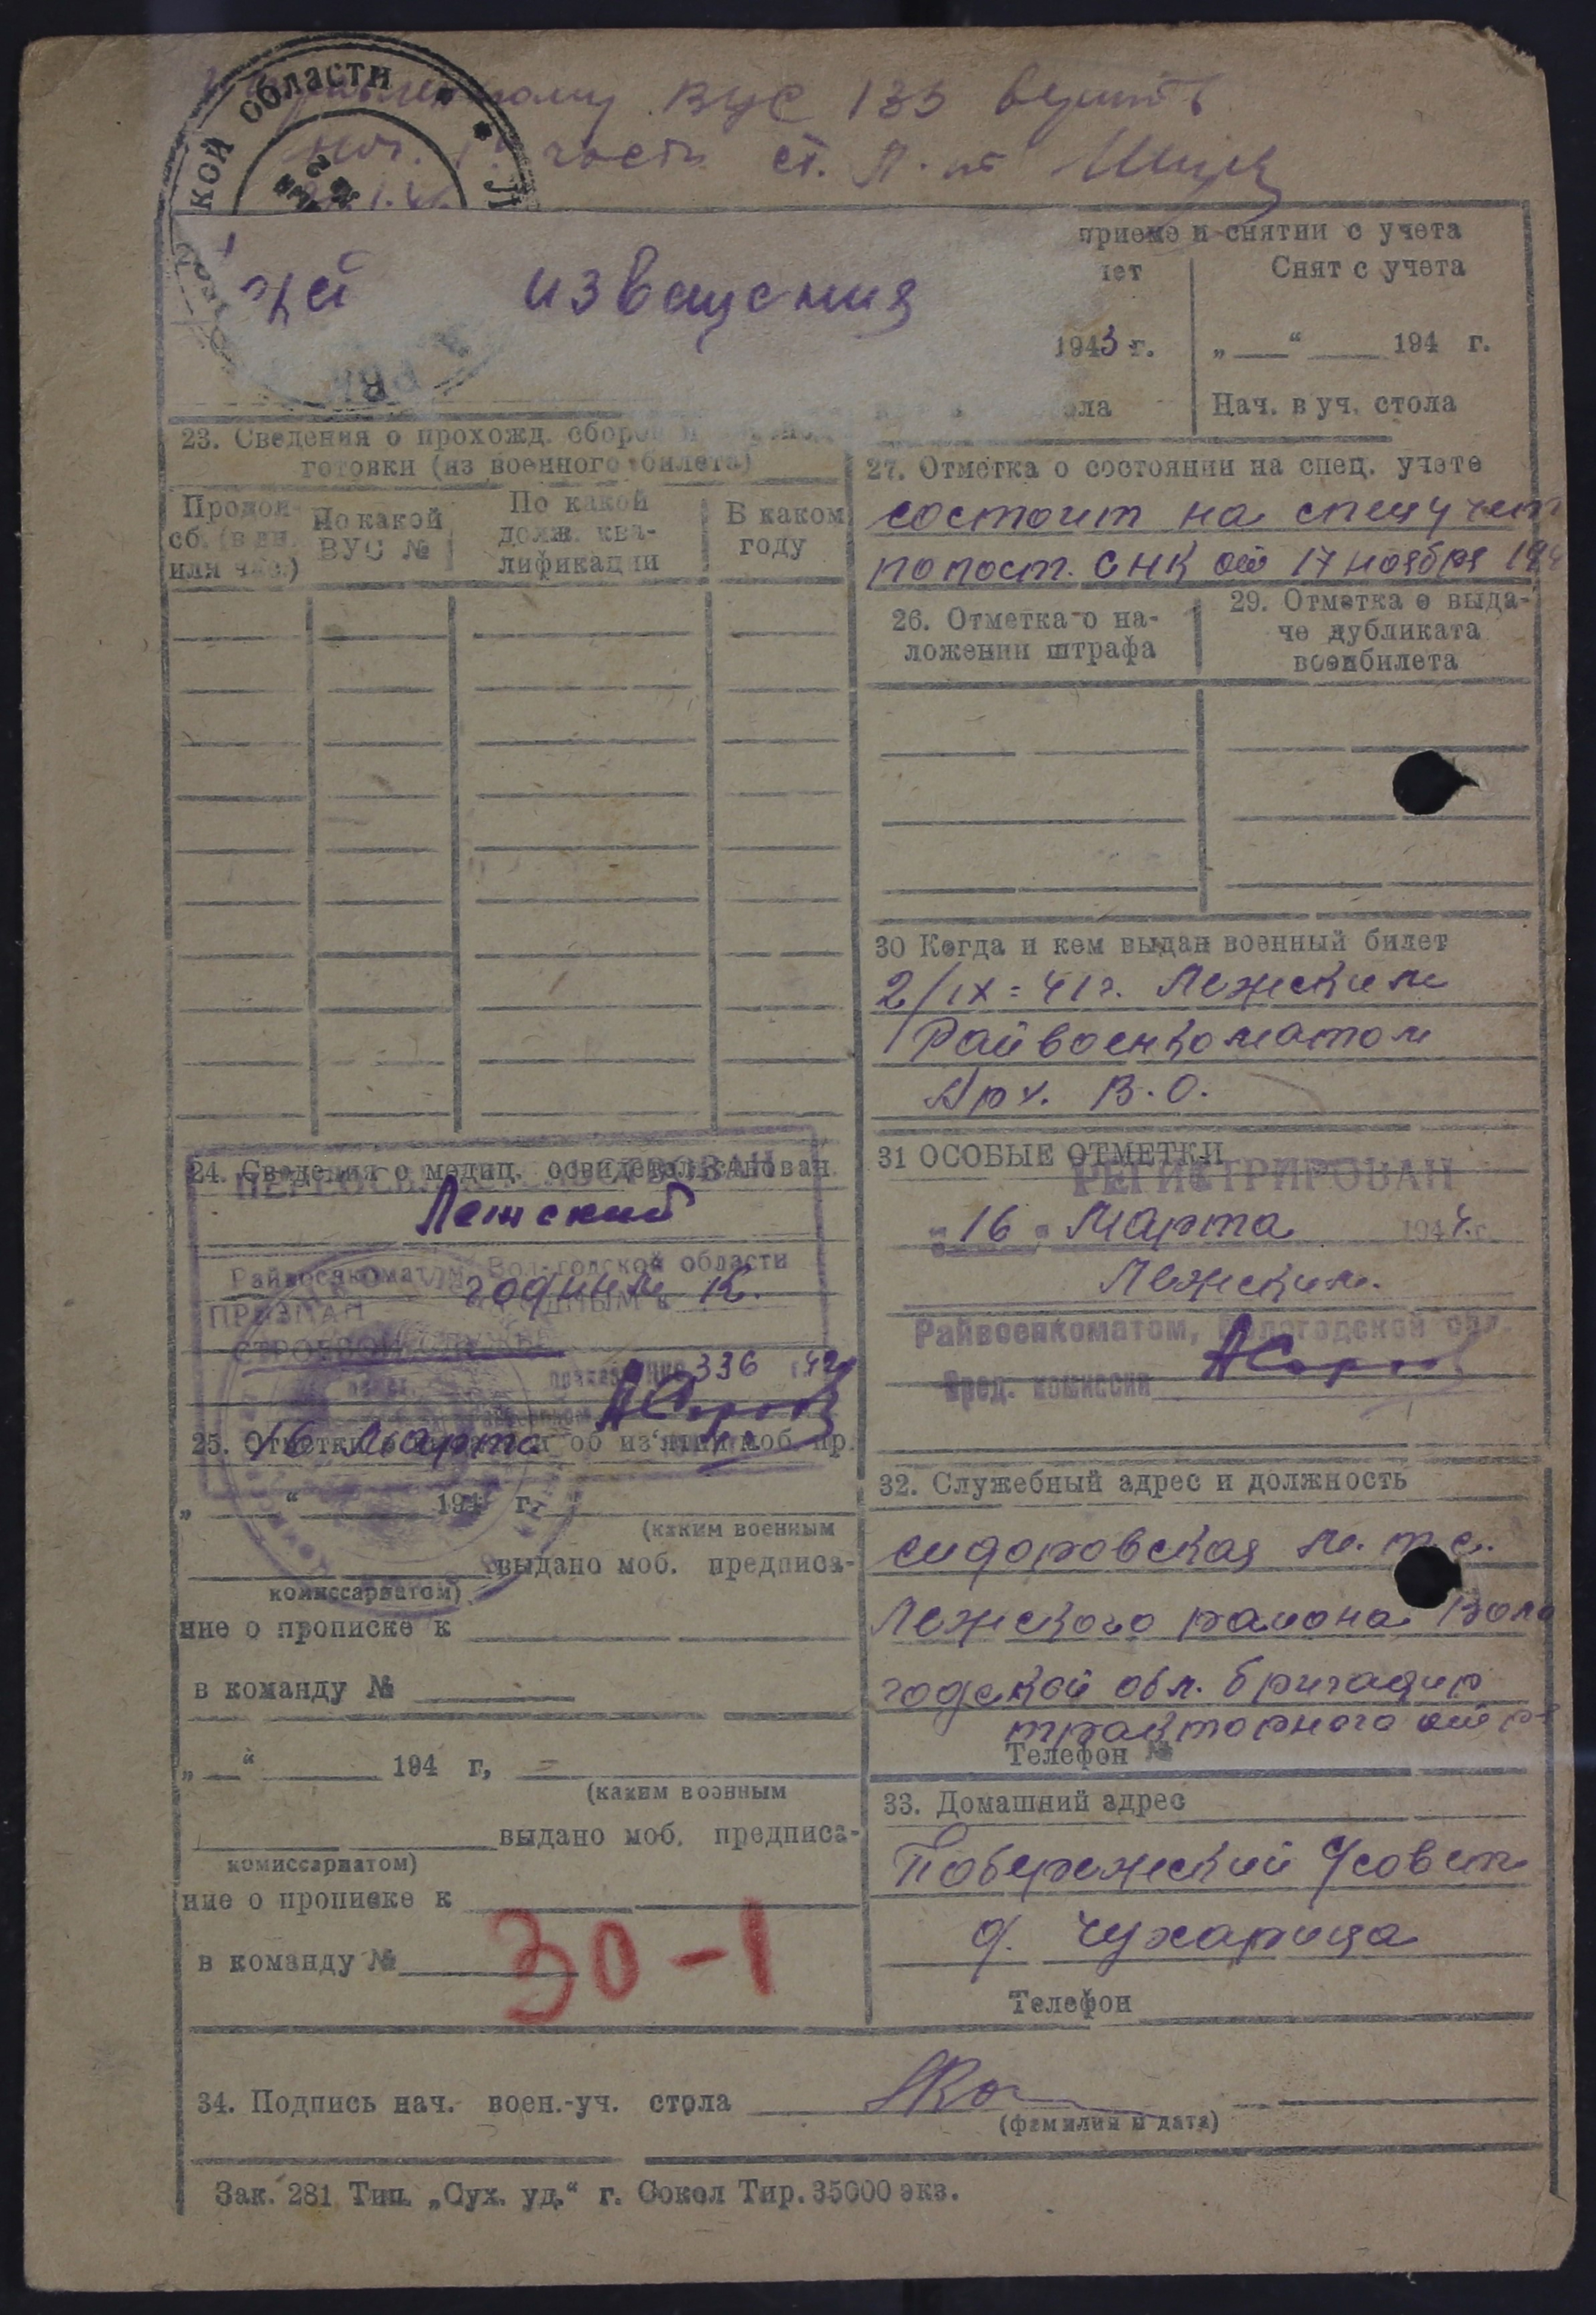 ВУС 133
части ст. Л-нт
кой области
извещения
приеме и снятии с учета
Снят с учета
1943 г.
„ “ 194 г.
Нач. в уч. стола
23. Сведения о прохожд. сборов
готовки (из военного билета)
Продол-
сб. (в дн.
или час.)
По какой
ВУС №
По какой
долж. ква-
лификации
В каком
году
27. Отметка о состоянии на спец. учете
состоит на спецучет
по пост. СНК от 17 ноября 194
26. Отметка о на-
ложении штрафа
29. Отметка о выда-
че дубликата
военбилета
30 Когда и кем выдан военный билет
2/IX=41г. Лежским
Райвоенкоматом
Арх. В.О.
24. Сведения о медиц. освидетельствован.
ПЕРЕОСВИДЕТЕЛЬСТВОВАН
Лежский
Райвоенкоматом Вологодской области
ПРИЗНАН ГОДНЫМ к
годным К.
СТРОЕВОЙ СЛУЖБЕ
336 42
16 Марта
25. Отметки об из'ятии моб. пр.
„ “ 194 г.
(каким военным
выдано моб. предписа-
комиссариатом)
ние о прописке к
в команду №
„ “ 194 г,
(каким военным
выдано моб. предписа-
комиссариатом)
ние о прописке к
в команду №
30-1
31 ОСОБЫЕ ОТМЕТКИ
РЕГИСТРИРОВАН
„16„ Марта 1944 г.
Лежским.
Райвоенкоматом, Вологодской обл.
Пред. комиссии
32. Служебный адрес и должность
сидоровская м.т.с.
Лежского района Воло
годской обл. бригадир
тракторного отр
Телефон №
33. Домашний адрес
Побережский с/совет
д. Чухарица
Телефон
34. Подпись нач. воен.-уч. стола
(фамилия и дата)
Зак. 281 Тип. „Сух. уд.“ г. Сокол Тир. 35000 экз.